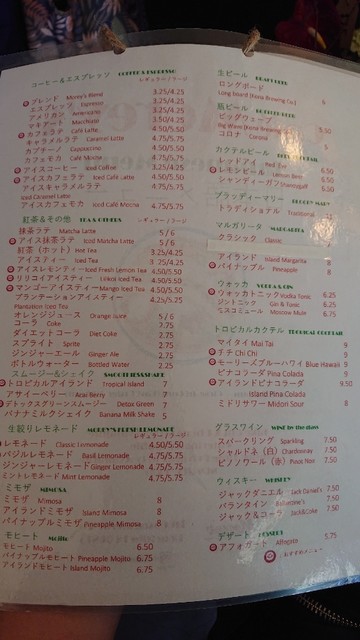 コーヒー＆エスプレッソ COFFEE & ESPRESSO
レギュラー / ラージ
ブレンド Morey's Blend 3.25/4.25
エスプレッソ Espresso 3.25/4.25
アメリカン Americano 3.25/4.25
マキアート Macchiato 3.50/4.50
カフェラテ Café Latte 4.50/5.50
キャラメルラテ Caramel Latte 4.75/5.75
カプチーノ Cappuccino 4.50/5.50
カフェモカ Café Mocha 4.75/5.75
アイスコーヒー Iced Coffee 3.25/4.25
アイスカフェラテ Iced Café Latte 4.75/5.75
アイスキャラメルラテ 4.75/5.75
Iced Caramel Latte
アイスカフェモカ Iced Café Mocha 4.75/5.75
紅茶＆その他 TEA & OTHERS
レギュラー / ラージ
抹茶ラテ Matcha Latte 5 / 6
アイス抹茶ラテ Iced Matcha Latte 5 / 6
紅茶（ホット） Hot Tea 3.25/4.25
アイスティー Iced Tea 3.25/4.25
アイスレモンティー Iced Fresh Lemon Tea 4.50/5.50
リリコイアイスティー 4.50/5.50
マンゴーアイスティー Mango Iced Tea 4.50/5.50
プランテーションアイスティー 4.25/5.25
Plantation Iced Tea
オレンジジュース Orange Juice 5 / 6
コーラ Coke 2.75
ダイエットコーラ Diet Coke 2.75
スプライト Sprite 2.75
ジンジャーエール Ginger Ale 2.75
ボトルウォーター Bottled Water 2.25
スムージー＆シェイク SMOOTHIES&SHAKE
トロピカルアイランド Tropical Island 7
アサイーベリー Acai Berry 7
デトックスグリーンスムージー Detox Green 7
バナナミルクシェイク Banana Milk Shake 5
生絞りレモネード MOREY'S FRESH LEMONADE
レギュラー / ラージ
レモネード Classic Lemonade 4.50/5.50
バジルレモネード Basil Lemonade 4.75/5.75
ジンジャーレモネード Ginger Lemonade 4.75/5.75
ミントレモネード Mint Lemonade 4.75/5.75
ミモザ MIMOSA
ミモザ Mimosa 8
アイランドミモザ Island Mimosa 8
パイナップルミモザ Pineapple Mimosa 8
モヒート Mojito
モヒート Mojito 6.50
パイナップルモヒート Pineapple Mojito 6.75
アイランドモヒート Island Mojito 6.75
生ビール DRAFT BEER
ロングボード
Long Board (Kona Brewing Co.) 6
瓶ビール
ビッグウェーブ
Big Wave (Kona Brewing 5.50
コロナ Corona 5
カクテルビール
レッドアイ Red Eye 6
レモンビール Lemon Beer 6.50
シャンディーガフ Shandygaff 6.50
ブラッディーマリー BLOODY MARY
トラディショナル Traditional
マルガリータ MARGARITA
クラシック Classic
アイランド Island Margarita 8
パイナップル Pineapple 8
ウォッカ VODKA & GIN
ウォッカトニック Vodka Tonic 6.25
ジントニック Gin & Tonic 6.25
モスコミュール Moscow Mule 6.75
トロピカルカクテル TROPICAL COCKTAIL
マイタイ Mai Tai 9
チチ Chi Chi 9
モーリーズブルーハワイ Blue Hawaii 9
ピナコラーダ Pina Colada 9
アイランドピナコラーダ 9.50
Island Pina Colada
ミドリサワー Midori Sour 8
グラスワイン WINE by the glass
スパークリング Sparkling 7.50
シャルドネ（白） Chardonnay 7.50
ピノノワール（赤） Pinot Noir 7.50
ウィスキー WHISKEY
ジャックダニエル Jack Daniel's 7.50
バランタイン Ballantine's 7.50
ジャック＆コーラ Jack&Coke 7.50
デザート DESSERT
アフォガード Affogato 5.75
おすすめメニュー